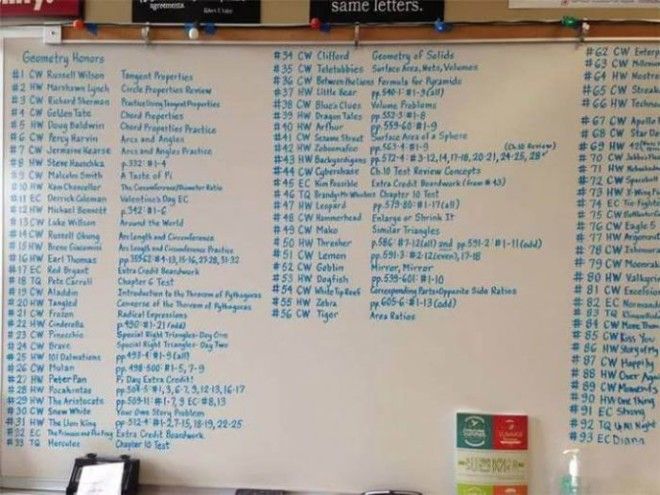 agreements.
same letters.
Geometry Honors
#1 CW Russell Wilson Tangent Properties
#2 HW Marshawn Lynch Circle Properties Review
#3 CW Richard Sherman Practice Using Tangent Properties
#4 CW Golden Tate Chord Properties
#5 HW Doug Baldwin Chord Properties Practice
#6 CW Percy Harvin Arcs and Angles
#7 CW Jermaine Kearse Arcs and Angles Practice
#8 HW Steve Hauschka p.332: #1-4
#9 CW Malcolm Smith A Taste of Pi
#10 HW Kam Chancellor The Circumference/Diameter Ratio
#11 EC Derrick Coleman Valentine's Day EC
#12 HW Michael Bennett p.342: #1-6
#13 CW Luke Willson Around the World
#14 CW Russell Okung Arc Length and Circumference
#15 HW Breno Giacomini Arc Length and Circumference Practice
#16 HW Earl Thomas #4-13, 15-16, 27-28, 31-32
#17 EC Red Bryant Extra Credit Boardwork
#18 TQ Pete Carroll Chapter 6 Test
#19 CW Aladdin Introduction to the Theorem of Pythagoras
#20 HW Tangled Converse of the Theorem of Pythagoras
#21 CW Frozen Radical Expressions
#22 HW Cinderella p.490: #1-21 (odd)
#23 CW Pinocchio Special Right Triangles- Day One
#24 CW Brave Special Right Triangles- Day Two
#25 HW 101 Dalmatians pp.493-4: #1-9 (all)
#26 CW Mulan pp.498-500: #1-5, 7-9
#27 HW Peter Pan Pi Day Extra Credit!
#28 HW Pocahontas pp.504-5: #1, 3, 6-7, 9, 12-13, 16-17
#29 HW The Aristocats pp.509-11: #1-7, 9 EC #8, 13
#30 CW Snow White Your Own Story Problem
#31 HW The Lion King pp.512-4: #1-2, 7-15, 18-19, 22-25
#32 EC The Princess and the Frog Extra Credit Boardwork
#33 TQ Hercules Chapter 10 Test
#34 CW Clifford Geometry of Solids
#35 CW Teletubbies Surface Area, Nets, Volumes
#36 CW Between the Lions Formula for Pyramids
#37 HW Little Bear pp.540-1: #1-9 (all)
#38 CW Blue's Clues Volume Problems
#39 HW Dragon Tales pp.532-3: #1-8
#40 HW Arthur pp.559-60: #1-9
#41 CW Sesame Street Surface Area of a Sphere
#42 HW Zoboomafoo pp.563-4: #1-9
#43 HW Backyardigans pp.572-4: #3-12, 14, 17-18, 20-21, 24-25, 28 (Ch.10 Review)
#44 CW Cyberchase Ch.10 Test Review Concepts
#45 EC Kim Possible Extra Credit Boardwork (from #43)
#46 TQ Brandy + Mr. Whiskers Chapter 10 Test
#47 HW Leopard pp.579-80: #1-17 (all)
#48 CW Hammerhead Enlarge or Shrink It
#49 CW Mako Similar Triangles
#50 HW Thresher p.586: #7-12 (all) and pp.591-2: #1-11 (odd)
#51 CW Lemon pp.591-3: #2-12 (even), 17-18
#52 CW Goblin Mirror, Mirror
#53 HW Dogfish pp.599-601: #1-10
#54 CW White Tip Reef Corresponding Parts + Opposite Side Ratios
#55 HW Zebra pp.605-6: #1-13 (odd)
#56 CW Tiger Area Ratios
#62 CW Enterp
#63 CW Millenniu
#64 HW Nostro
#65 CW Streak
#66 HW Techno
#67 CW Apollo
#68 CW Star De
#69 HW 42
#70 CW Jabba's
#71 HW
#72 CW Spaceball
#73 HW
#74 EC Tie-Fighter
#75 CW
#76 CW Eagle 5
#77 HW Argonaut
#78 CW
#79 CW
#80 HW Valkyrie
#81 CW Excelsior
#82 EC Normandy
#83 TQ
#84 CW More Than
#85 CW Kiss You
#86 HW Story of My
#87 CW Happily
#88 HW Over Again
#89 CW Moments
#90 HW One Thing
#91 EC Strong
#92 TQ Up All Night
#93 EC Diana